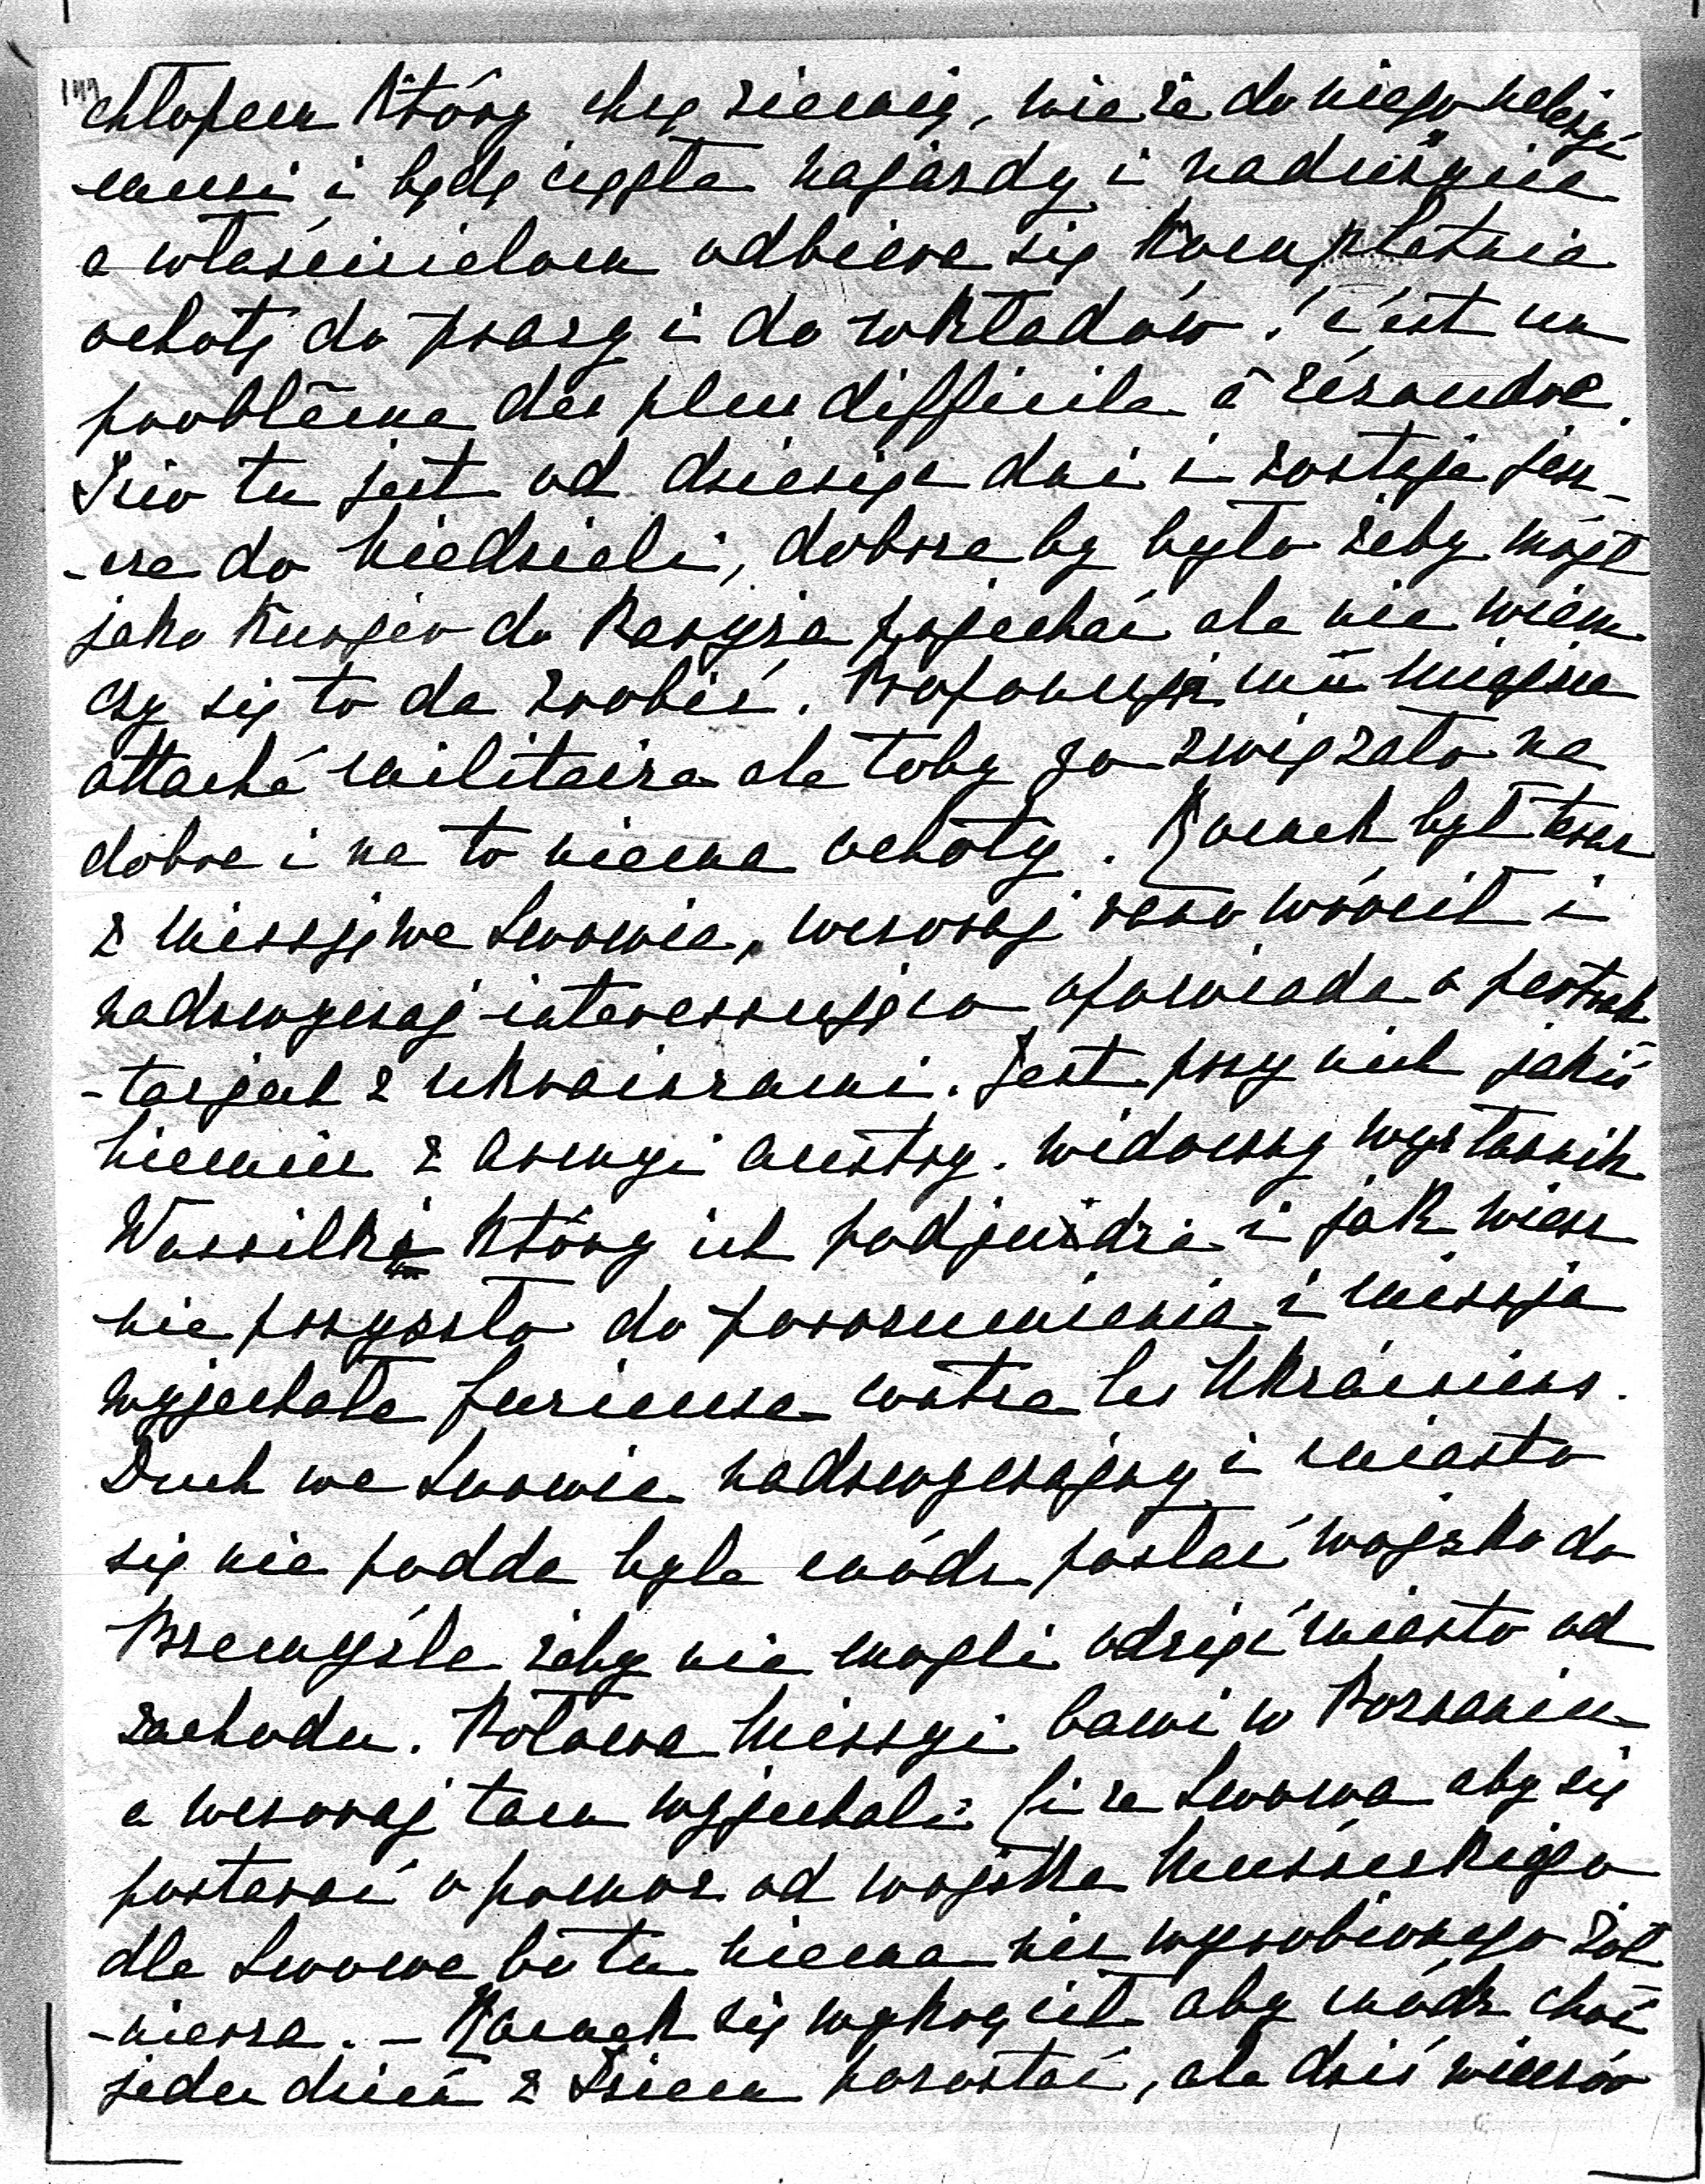 144
chłopem który chcę ziemię, wie że do niego należyć
musi i będą ciągłe najazdy i nadużycia
a właścicielom odbiera się kompletnie
ochotę do pracy i do wkładów! c'est un
problème des plus difficile à résoudre.
Izio tu jest od dziesięć dni i zostaje jesz-
-cze do niedzieli, dobrze by było żeby mógł
jako kurjer do Paryża pojechać ale nie wiem
czy się to da zrobić. Proponują mu miejsce
attaché militaire ale toby go związało na
dobre i na to niema ochoty. Romek był teraz
z missją we Lwowie, wczoraj rano wrócił i
nadzwyczaj interessująco opowiada o pertrak
-tacjach z ukraincami. Jest przy nich jakiś
niemiec z armyi austry. widoczny wysłannik
Wassilki który ich podjudza i jak wiesz
nie przyszło do porozumienia i missja
wyjechała furieuse contre les Ukrainiens.
Duch we Lwowie nadzwyczajny i miasto
się nie podda byle módz posłać wojsko do
Przemyśla żeby nie mogli odciąć miasto od
zachodu. Połowa missyi bawi w Poznaniu
a wczoraj tam wyjechali ci ze Lwowa aby się
postarać o pomoc od wojska Muśnickiego
dla Lwowa bo tu niema nic wyrobionego żoł
-nierza. – Romek się wykręcił aby módz choć
jeden dzień z Iziem pozostać, ale dziś wieczór